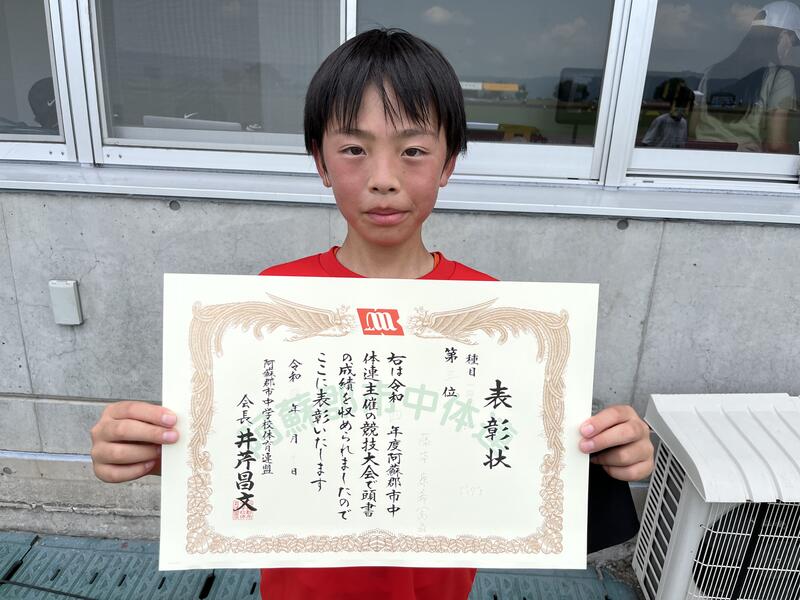 表彰状
種目
第三位
右は令和四年度阿蘇郡市中
体連主催の競技大会で頭書
の成績を収められましたので
ここに表彰いたします
令和 年 月 日
阿蘇郡市中学校体育連盟
会長 井芹昌文
阿蘇郡市中体連